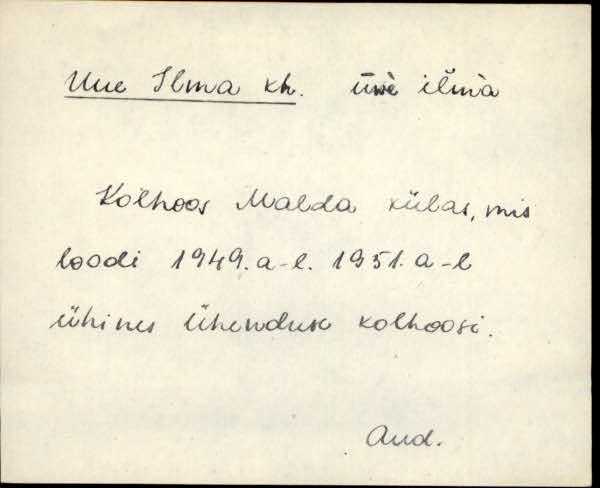 Uue Ilma kh. ūwè ilmà
Kolhoos Malda külas, mis
loodi 1949. a-l. 1951. a-l
ühines Ühenduse kolhoosi.
Aud.